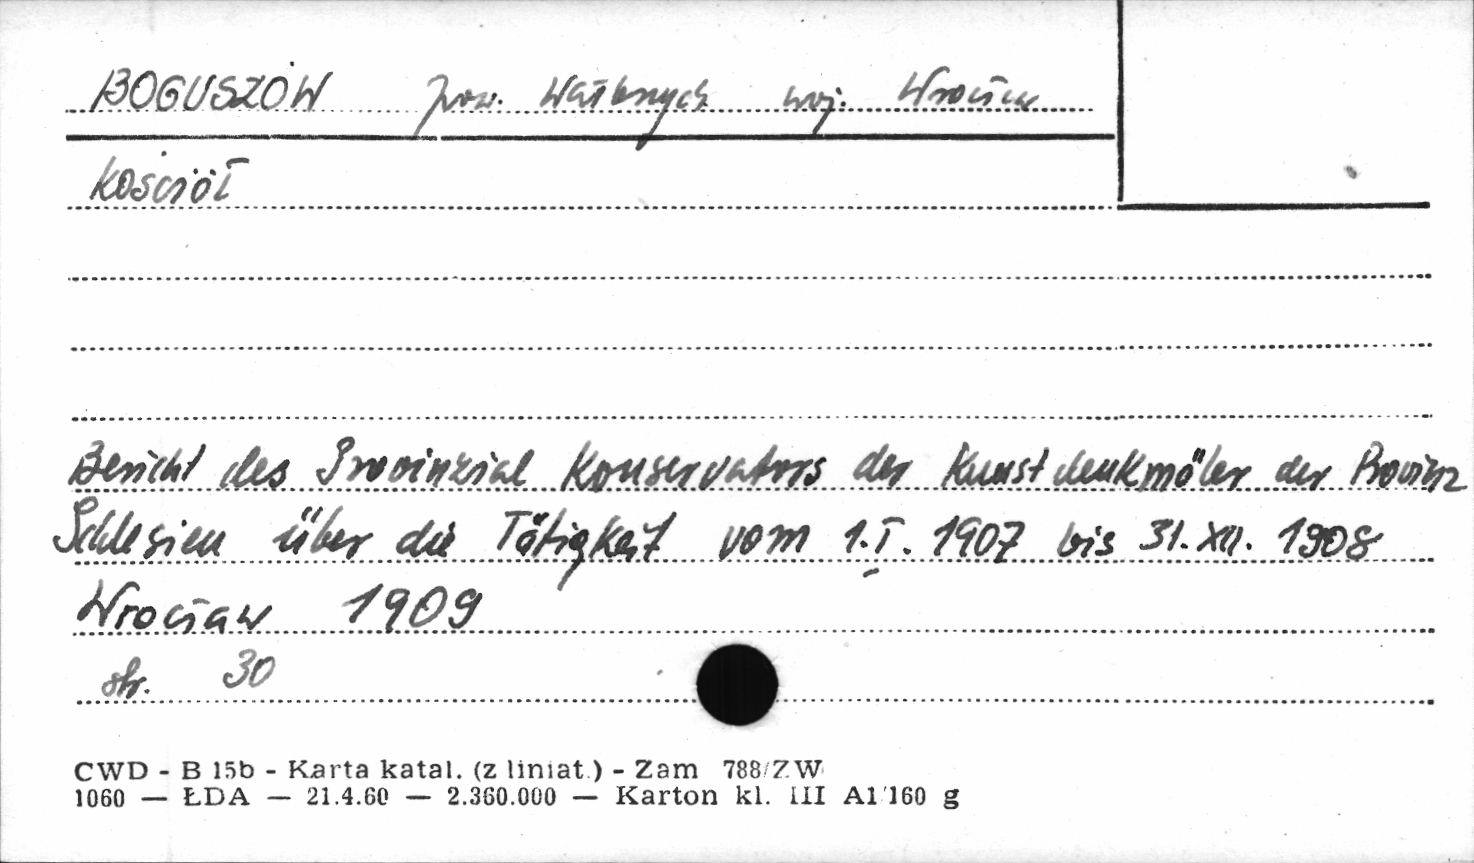 BOGUSZÓW pow. Wałbrzych woj. Wrocław
Kościół
Bericht des Provinzial Konservators der Kunstdenkmäler der Provinz
Schlesien über die Tätigkeit vom 1.I. 1907 bis 31.XII. 1908
Wrocław 1909
str. 30
CWD - B 15b - Karta katal. (z liniat.) - Zam 788/ZW
1060 — ŁDA — 21.4.60 — 2.360.000 — Karton kl. III A1/160 g